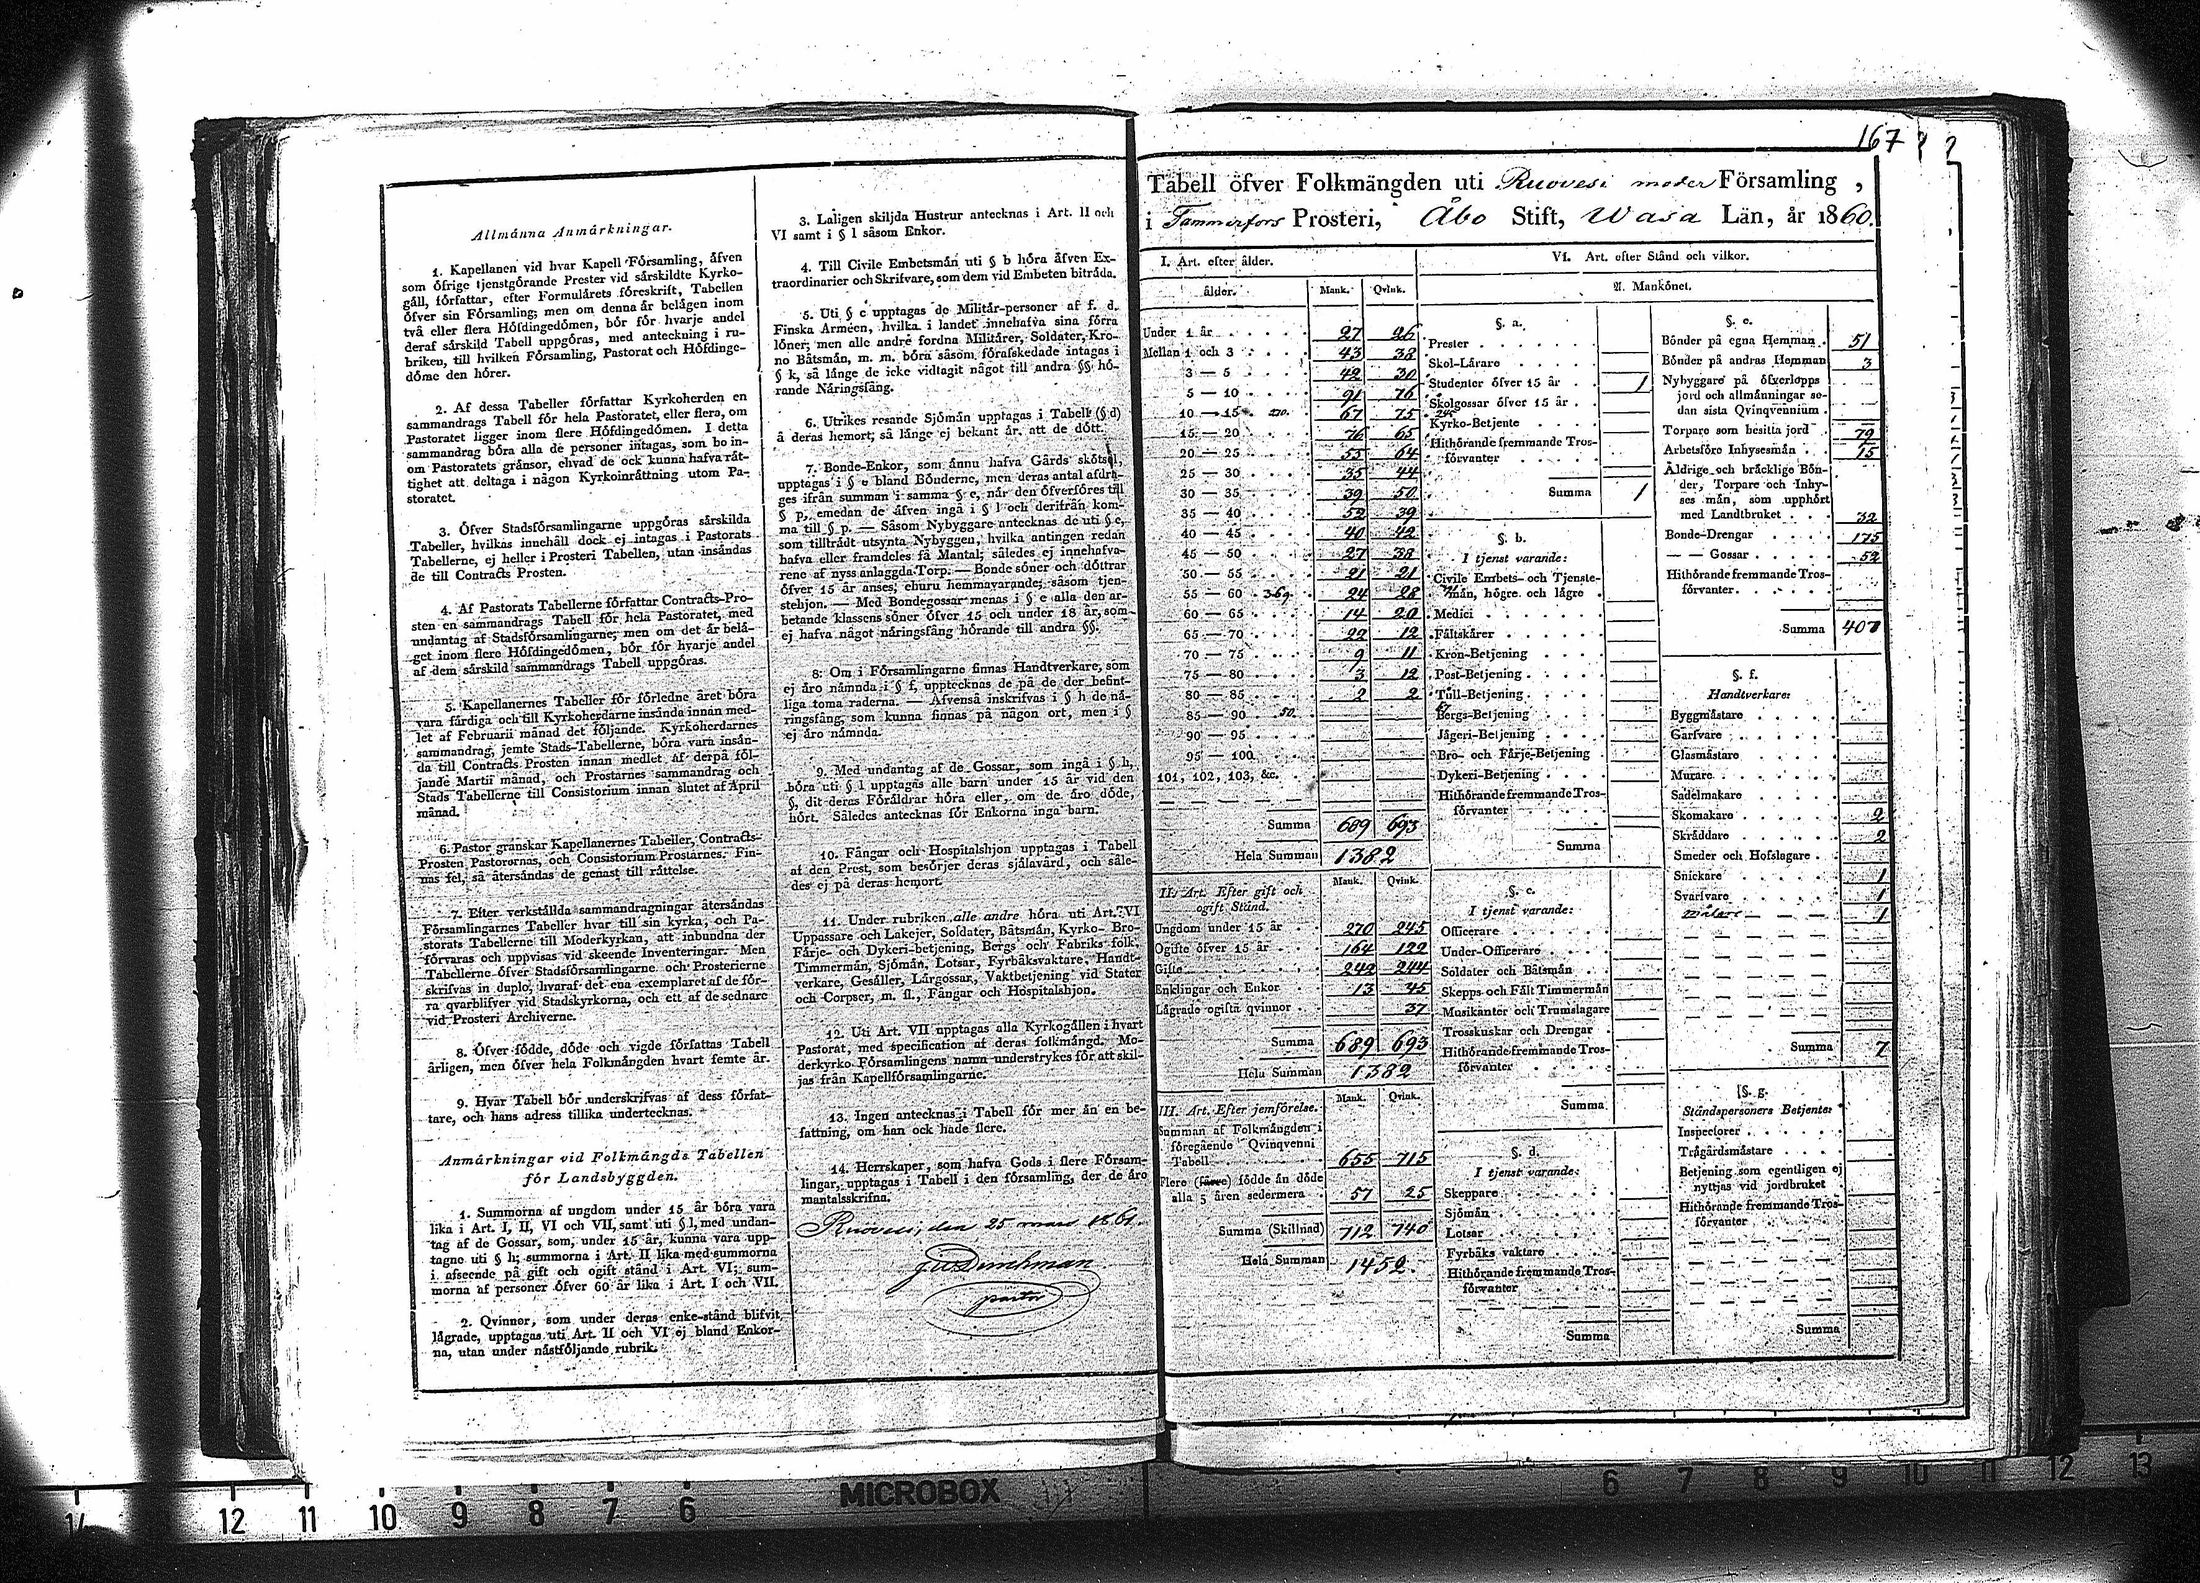 Allmånna Anmårkningar.
1. Kapellanen vid hvar Kapell Församling, åfven
som öfrige tjenstgörande Prester vid sårskildte Kyrko-
gåll, författar, efter Formulårets föreskrift, Tabellen
öfver sin Församling; men om denna år belågen inom
två eller flera Höfdingedömen, bör för hvarje andel
deraf sårskild Tabell uppgöras, med anteckning i ru-
briken, till hvilken Församling, Pastorat och Höfdinge-
döme den hörer.
2. Af dessa Tabeller författar Kyrkoherden en
sammandrags Tabell för hela Pastoratet, eller flera, om
Pastoratet ligger inom flere Höfdingedömen. I detta
sammandrag böra alla de personer intagas, som bo in-
om Pastoratets grånsor, ehvad de ock kunna hafva råt-
tighet att deltaga i någon Kyrkoinråttning utom Pa-
storatet.
3. Öfver Stadsförsamlingarne uppgöras sårskilda
Tabeller, hvilkas innehåll dock ej intages i Pastorats
Tabellerne, ej heller i Prosteri Tabellen, utan insåndas
de till Contracts Prosten.
4. Af Pastorats Tabellerne författar Contracts-Pro-
sten en sammandrags Tabell för hela Pastoratet, med
undantag af Stadsförsamlingarne; men om det år belå-
get inom flere Höfdingedömen, bör för hvarje andel
af dem sårskild sammandrags Tabell uppgöras.
5. Kapellanernes Tabeller för förledne året böra
vara fårdiga och till Kyrkoherdarne insånda innan med-
let af Februarii månad det följande. Kyrkoherdarnes
sammandrag, jemte Stads-Tabellerne, böra vara insån-
da till Contracts Prosten innan medlet af derpå föl-
jande Martii månad, och Prostarnes sammandrag och
Stads Tabellerne till Consistorium innan slutet af April
månad.
6. Pastor granskar Kapellanernes Tabeller, Contracts-
Prosten Pastorernas, och Consistorium Prostarnes. Fin-
nas fel, så återsåndas de genast till råttelse.
7. Efter verkstållda sammandragningar återsåndas
Församlingarnes Tabeller hvar till sin kyrka, och Pa-
storats Tabellerne till Moderkyrkan, att inbundna der
förvaras och uppvisas vid skeende Inventeringar. Men
Tabellerne öfver Stadsförsamlingarne och Prosterierne
skrifvas in duplo, hvaraf det ena exemplaret af de för-
ra qvarblifver vid Stadskyrkorna, och ett af de sednare
vid Prosteri Archiverne.
8. Öfver födde, döde och vigde författas Tabell
årligen, men öfver hela Folkmångden hvart femte år.
9. Hvar Tabell bör underskrifvas af dess förfat-
tare, och hans adress tillika undertecknas.
Anmårkningar vid Folkmångds Tabellen
för Landsbyggden.
1. Summorna af ungdom under 15 år böra vara
lika i Art. I, II, VI och VII, samt uti § l, med undan-
tag af de Gossar, som, under 15 år, kunna vara upp-
tagne uti § h; summorna i Art. II lika med summorna
i afseende på gift och ogift stånd i Art. VI; sum-
morna af personer öfver 60 år lika i Art. I och VII.
2. Qvinnor, som under deras enke-stånd blifvit
lågrade, upptagas uti Art. II och VI ej bland Enkor-
na, utan under nåstföljande rubrik.
3. Laligen skiljda Hustrur antecknas i Art. II och
VI samt i § l såsom Enkor.
4. Till Civile Embetsmån uti § b höra åfven Ex-
traordinarier och Skrifvare, som dem vid Embeten bitråda.
5. Uti § c upptagas de Militår-personer af f. d.
Finska Armeen, hvilka i landet innehafva sina förra
löner; men alle andre fordna Militårer, Soldater, Kro-
no Båtsmån, m. m. böra såsom förafskedade intagas i
§ k, så långe de icke vidtagit något till andra §§ hö-
rande Nåringsfång.
6. Utrikes resande Sjömån upptagas i Tabell (§ d)
å deras hemort, så långe ej bekant år, att de dött.
7. Bonde-Enkor, som ånnu hafva Gårds skötsel,
upptagas i § e bland Bönderne, men deras antal afdra-
ges ifrån summan i samma § e, når den öfverföres till
§ p, emedan de åfven ingå i § l och derifrån kom-
ma till § p. — Såsom Nybyggare antecknas de uti § e,
som tilltrådt utsynta Nybyggen, hvilka antingen redan
hafva eller framdeles få Mantal; således ej innehafva-
rene af nyss anlaggda Torp. — Bonde söner och döttrar
öfver 15 år anses, ehuru hemmavarande, såsom tjen-
stehjon. — Med Bondegossar menas i § e alla den ar-
betande klassens söner öfver 15 och under 18 år, som
ej hafva något nåringsfång hörande till andra §§.
8. Om i Församlingarne finnas Handtverkare, som
ej åro nåmnda i § f, upptecknas de på de der befint-
liga toma raderna. — Åfvenså inskrifvas i § h de nå-
ringsfång, som kunna finnas på någon ort, men i §
ej åro nåmnda.
9. Med undantag af de Gossar, som ingå i § h,
böra uti § l upptagas alle barn under 15 år vid den
§, dit deras Föråldrar höra eller, om de åro döde,
hört. Således antecknas för Enkorna inga barn.
10. Fångar och Hospitalshjon upptagas i Tabell
af den Prest, som besörjer deras sjålavård, och såle-
des ej på deras hemort.
11. Under rubriken alle andre höra uti Art. VI
Uppassare och Lakejer, Soldater, Båtsmån, Kyrko- Bro-
Fårje- och Dykeri-betjening, Bergs och Fabriks folk,
Timmermån, Sjömån, Lotsar, Fyrbåksvaktare, Handt-
verkare, Gesåller, Lårgossar, Vaktbetjening vid Stater
och Corpser, m. fl., Fångar och Hospitalshjon.
12. Uti Art. VII upptagas alla Kyrkogållen i hvart
Pastorat, med specification af deras folkmångd. Mo-
derkyrko-Församlingens namn understrykes för att skil-
jas från Kapellförsamlingarne.
13. Ingen antecknas i Tabell för mer ån en be-
fattning, om han ock hade flere.
14. Herrskaper, som hafva Gods i flere Försam-
lingar, upptagas i Tabell i den församling, der de åro
mantalsskrifna.
Ruovesi, den 25 mars 1861.
pastor
167
Tabell öfver Folkmängden uti Ruovesi moder Församling,
i Tammerfors Prosteri, Åbo Stift, Wasa Län, år 1860.
I. Art. efter ålder.
ålder. Mank. Qvink.
Under 1 år 27 26
Mellan 1 och 3 43 38
3 — 5 42 30
5 — 10 91 76
10 — 15 270. 67 75 245
15 — 20 76 65
20 — 25 55 64
25 — 30 35 44
30 — 35 39 50
35 — 40 52 39
40 — 45 40 42
45 — 50 27 38
50 — 55 21 21
55 — 60 369 24 28
60 — 65 14 20
65 — 70 22 12
70 — 75 9 11
75 — 80 3 12
80 — 85 2 2
85 — 90 50
90 — 95
95 — 100
101, 102, 103, &c.
Summa 689 693
Hela Summan 1382
II. Art. Efter gift och
ogift Stånd.
Mank. Qvink.
Ungdom under 15 år 270 245
Ogifte öfver 15 år 164 122
Gifte 242 244
Enklingar och Enkor 13 45
Lågrade ogifta qvinnor 37
Summa 689 693
Hela Summan 1382
III. Art. Efter jemförelse.
Mank. Qvink.
Summan af Folkmångden i
föregående Qvinqvenni
Tabell 655 715
Flere (färre) födde ån döde
alla 5 åren sedermera 57 25
Summa (Skillnad) 712 740
Hela Summan 1452.
VI. Art. efter Stånd och vilkor.
A. Mankönet.
§. a.
Prester
Skol-Lårare
Studenter öfver 15 år 1
Skolgossar öfver 15 år
Kyrko-Betjente
Hithörande fremmande Tros-
förvanter
Summa 1
§. b.
I tjenst varande:
Civile Embets- och Tjenste-
mån, högre och lågre
Medici
Fåltskårer
Kron-Betjening
Post-Betjening
Tull-Betjening
Bergs-Betjening
Jågeri-Betjening
Bro- och Fårje-Betjening
Dykeri-Betjening
Hithörande fremmande Tros-
förvanter
Summa
§. c.
I tjenst varande:
Officerare
Under-Officerare
Soldater och Båtsmån
Skepps och Fålt Timmermån
Musikanter och Trumslagare
Trosskuskar och Drengar
Hithörande fremmande Tros-
förvanter
Summa
§. d.
I tjenst varande:
Skeppare
Sjömån
Lotsar
Fyrbåks vaktare
Hithörande fremmande Tros-
förvanter
Summa
§. e.
Bönder på egna Hemman 51
Bönder på andras Hemman 3
Nybyggare på öfverlopps
jord och allmånningar se-
dan sista Qvinqvennium
Torpare som besitta jord 79
Arbetsföre Inhysesmån 15
Åldrige och bråcklige Bön-
der, Torpare och Inhy-
ses mån, som upphört
med Landtbruket 32
Bonde-Drengar 175
— — Gossar 52
Hithörande fremmande Tros-
förvanter
Summa 407
§. f.
Handtverkare:
Byggmåstare
Garfvare
Glasmåstare
Murare
Sadelmakare
Skomakare 2
Skråddare 2
Smeder och Hofslagare
Snickare 1
Svarfvare 1
Målare 1
Summa 7
§. g.
Ståndspersoners Betjente:
Inspectorer
Trågårdsmåstare
Betjening som egentligen ej
nyttjas vid jordbruket
Hithörande fremmande Tros-
förvanter
Summa
MICROBOX
14 12 11 10 9 8 7 6
6 7 8 9 10 11 12 13